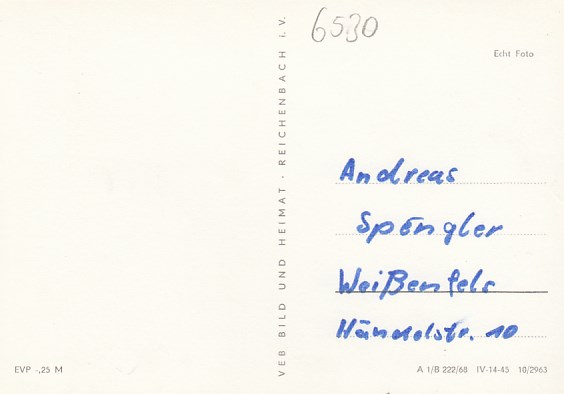 6530
Echt Foto
VEB BILD UND HEIMAT · REICHENBACH i. V.
Andreas
Spengler
Weißenfels
Händelstr. 10
EVP -,25 M
A 1/B 222/68 IV-14-45 10/2963